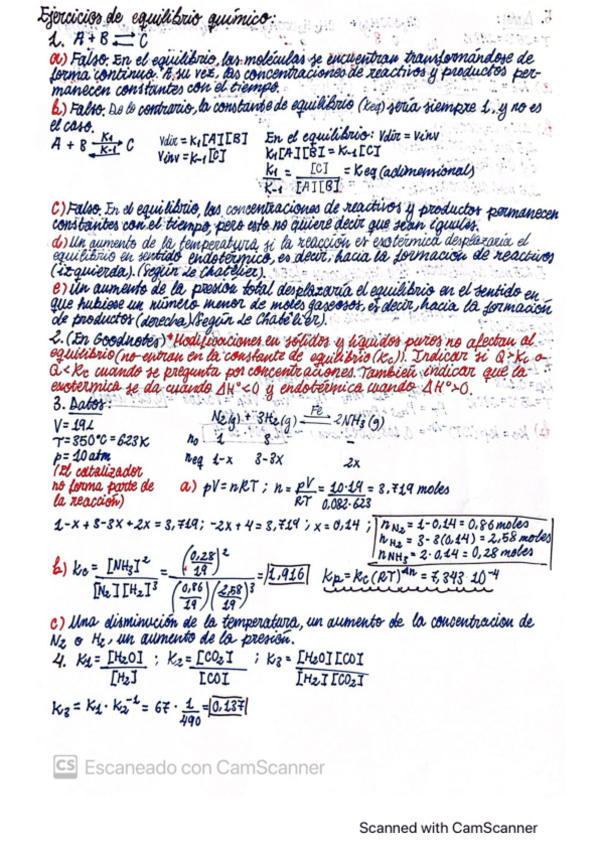 Ejercicios de equilibrio químico:
1. A + B ⇄ C
a) Falso. En el equilibrio, las moléculas se encuentran transformándose de
forma continua. A su vez, las concentraciones de reactivos y productos per-
manecen constantes con el tiempo.
b) Falso. De lo contrario, la constante de equilibrio (Keq) sería siempre 1, y no es
el caso.
A + B ⇄ C K1 K-1 Vdir = K1[A][B] En el equilibrio: Vdir = Vinv
Vinv = K-1[C] K1[A][B] = K-1[C]
K1/K-1 = [C]/[A][B] = Keq (adimensional)
C) Falso. En el equilibrio, las concentraciones de reactivos y productos permanecen
constantes con el tiempo, pero esto no quiere decir que sean iguales.
d) Un aumento de la temperatura si la reacción es exotérmica desplazaría el
equilibrio en sentido endotérmico, es decir, hacia la formación de reactivos
(izquierda). (Según Le Chatêlier).
e) Un aumento de la presión total desplazaría el equilibrio en el sentido en
que hubiese un número menor de moles gaseosos, es decir, hacia la formación
de productos (derecha) (Según Le Chatêlier).
2. (En Goodnotes) *Modificaciones en sólidos y líquidos puros no afectan al
equilibrio (no entran en la constante de equilibrio (Kc)). Indicar si Q > Kc o
Q < Kc cuando se pregunta por concentraciones. También indicar que la
exotérmica se da cuando ΔH° < 0 y endotérmica cuando ΔH° > 0.
3. Datos: N2(g) + 3H2(g) ⇄ 2NH3(g) Fe
V = 19L n0 1 3 -
T = 350°C = 623K neq 1-x 3-3x 2x
p = 10 atm
(El catalizador
no forma parte de
la reacción)
a) pV = nRT ; n = pV/RT = 10·19/0,082·623 = 3,719 moles
1-x + 3-3x + 2x = 3,719 ; -2x + 4 = 3,719 ; x = 0,14 ;
nN2 = 1 - 0,14 = 0,86 moles
nH2 = 3 - 3(0,14) = 2,58 moles
nNH3 = 2 · 0,14 = 0,28 moles
b) Kc = [NH3]²/[N2][H2]³ = (0,28/19)²/(0,86/19)(2,58/19)³ = 1,916 Kp = Kc(RT)^Δn = 7,343 · 10⁻⁴
c) Una disminución de la temperatura, un aumento de la concentración de
N2 o H2, un aumento de la presión.
4. K1 = [H2O]/[H2] ; K2 = [CO2]/[CO] ; K3 = [H2O][CO]/[H2][CO2]
K3 = K1 · K2⁻¹ = 67 · 1/490 = 0,137
CS Escaneado con CamScanner
Scanned with CamScanner